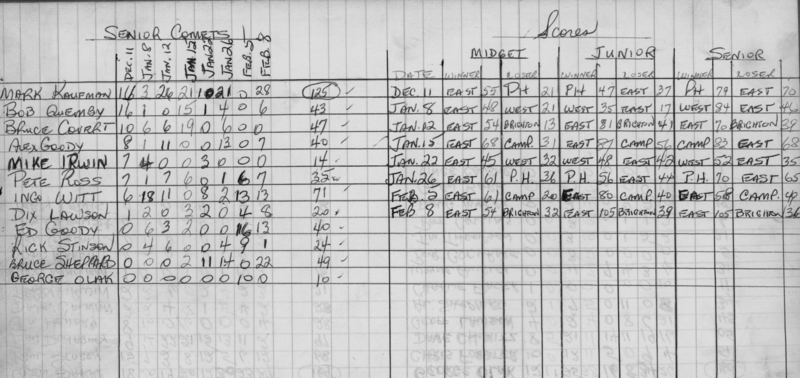 SENIOR COMETS
DEC. 11 JAN. 8 JAN. 12 JAN. 15 JAN 22 JAN. 26 FEB. 5 FEB. 8
MARK KAUFMAN 16 3 26 21 10 21 0 28 125
BOB QUEMBY 16 1 0 15 1 4 0 6 43
BRUCE COVERT 10 6 6 19 0 6 0 0 47
ALEX GOODY 8 1 11 0 0 13 0 7 40
MIKE IRWIN 7 4 0 0 3 0 0 0 14
PETE ROSS 7 1 7 6 0 1 6 7 35
INGO WITT 6 18 11 0 8 2 13 13 71
DIX LAWSON 1 2 0 3 2 0 4 8 20
ED GOODY 0 6 3 2 0 0 16 13 40
RICK STINSON 0 4 6 0 0 4 9 1 24
BRUCE SHEPPARD 0 0 0 2 11 14 0 22 49
GEORGE OLAK 0 0 0 0 0 0 10 0 10
Scores
MIDGET JUNIOR SENIOR
DATE WINNER LOSER WINNER LOSER WINNER LOSER
DEC 11 EAST 55 PH 21 PH 47 EAST 37 PH 79 EAST 70
JAN. 8 EAST 48 WEST 21 WEST 35 EAST 17 WEST 84 EAST 46
JAN. 12 EAST 54 BRIGHTON 13 EAST 81 BRIGHTON 41 EAST 70 BRIGHTON 39
JAN. 15 EAST 68 CAMP. 31 EAST 87 CAMP. 56 CAMP. 83 EAST 68
JAN. 22 EAST 45 WEST 32 WEST 48 EAST 42 WEST 52 EAST 35
JAN. 26 EAST 61 P.H. 36 P.H. 56 EAST 44 P.H. 70 EAST 65
FEB. 5 EAST 61 CAMP 20 EAST 80 CAMP. 40 EAST 58 CAMP.
FEB 8 EAST 54 BRIGHTON 32 EAST 105 BRIGHTON 39 EAST 105 BRIGHTON 36